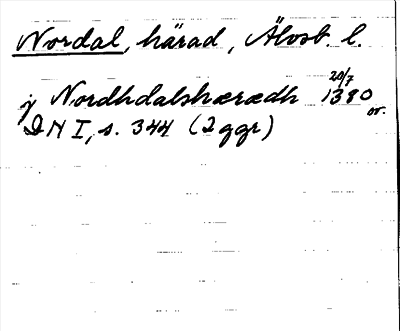 Nordal, härad, Älvsb. l.
j Nordhdalshæradh 20/7 1380 or.
DN I, s. 344 (2 ggr)